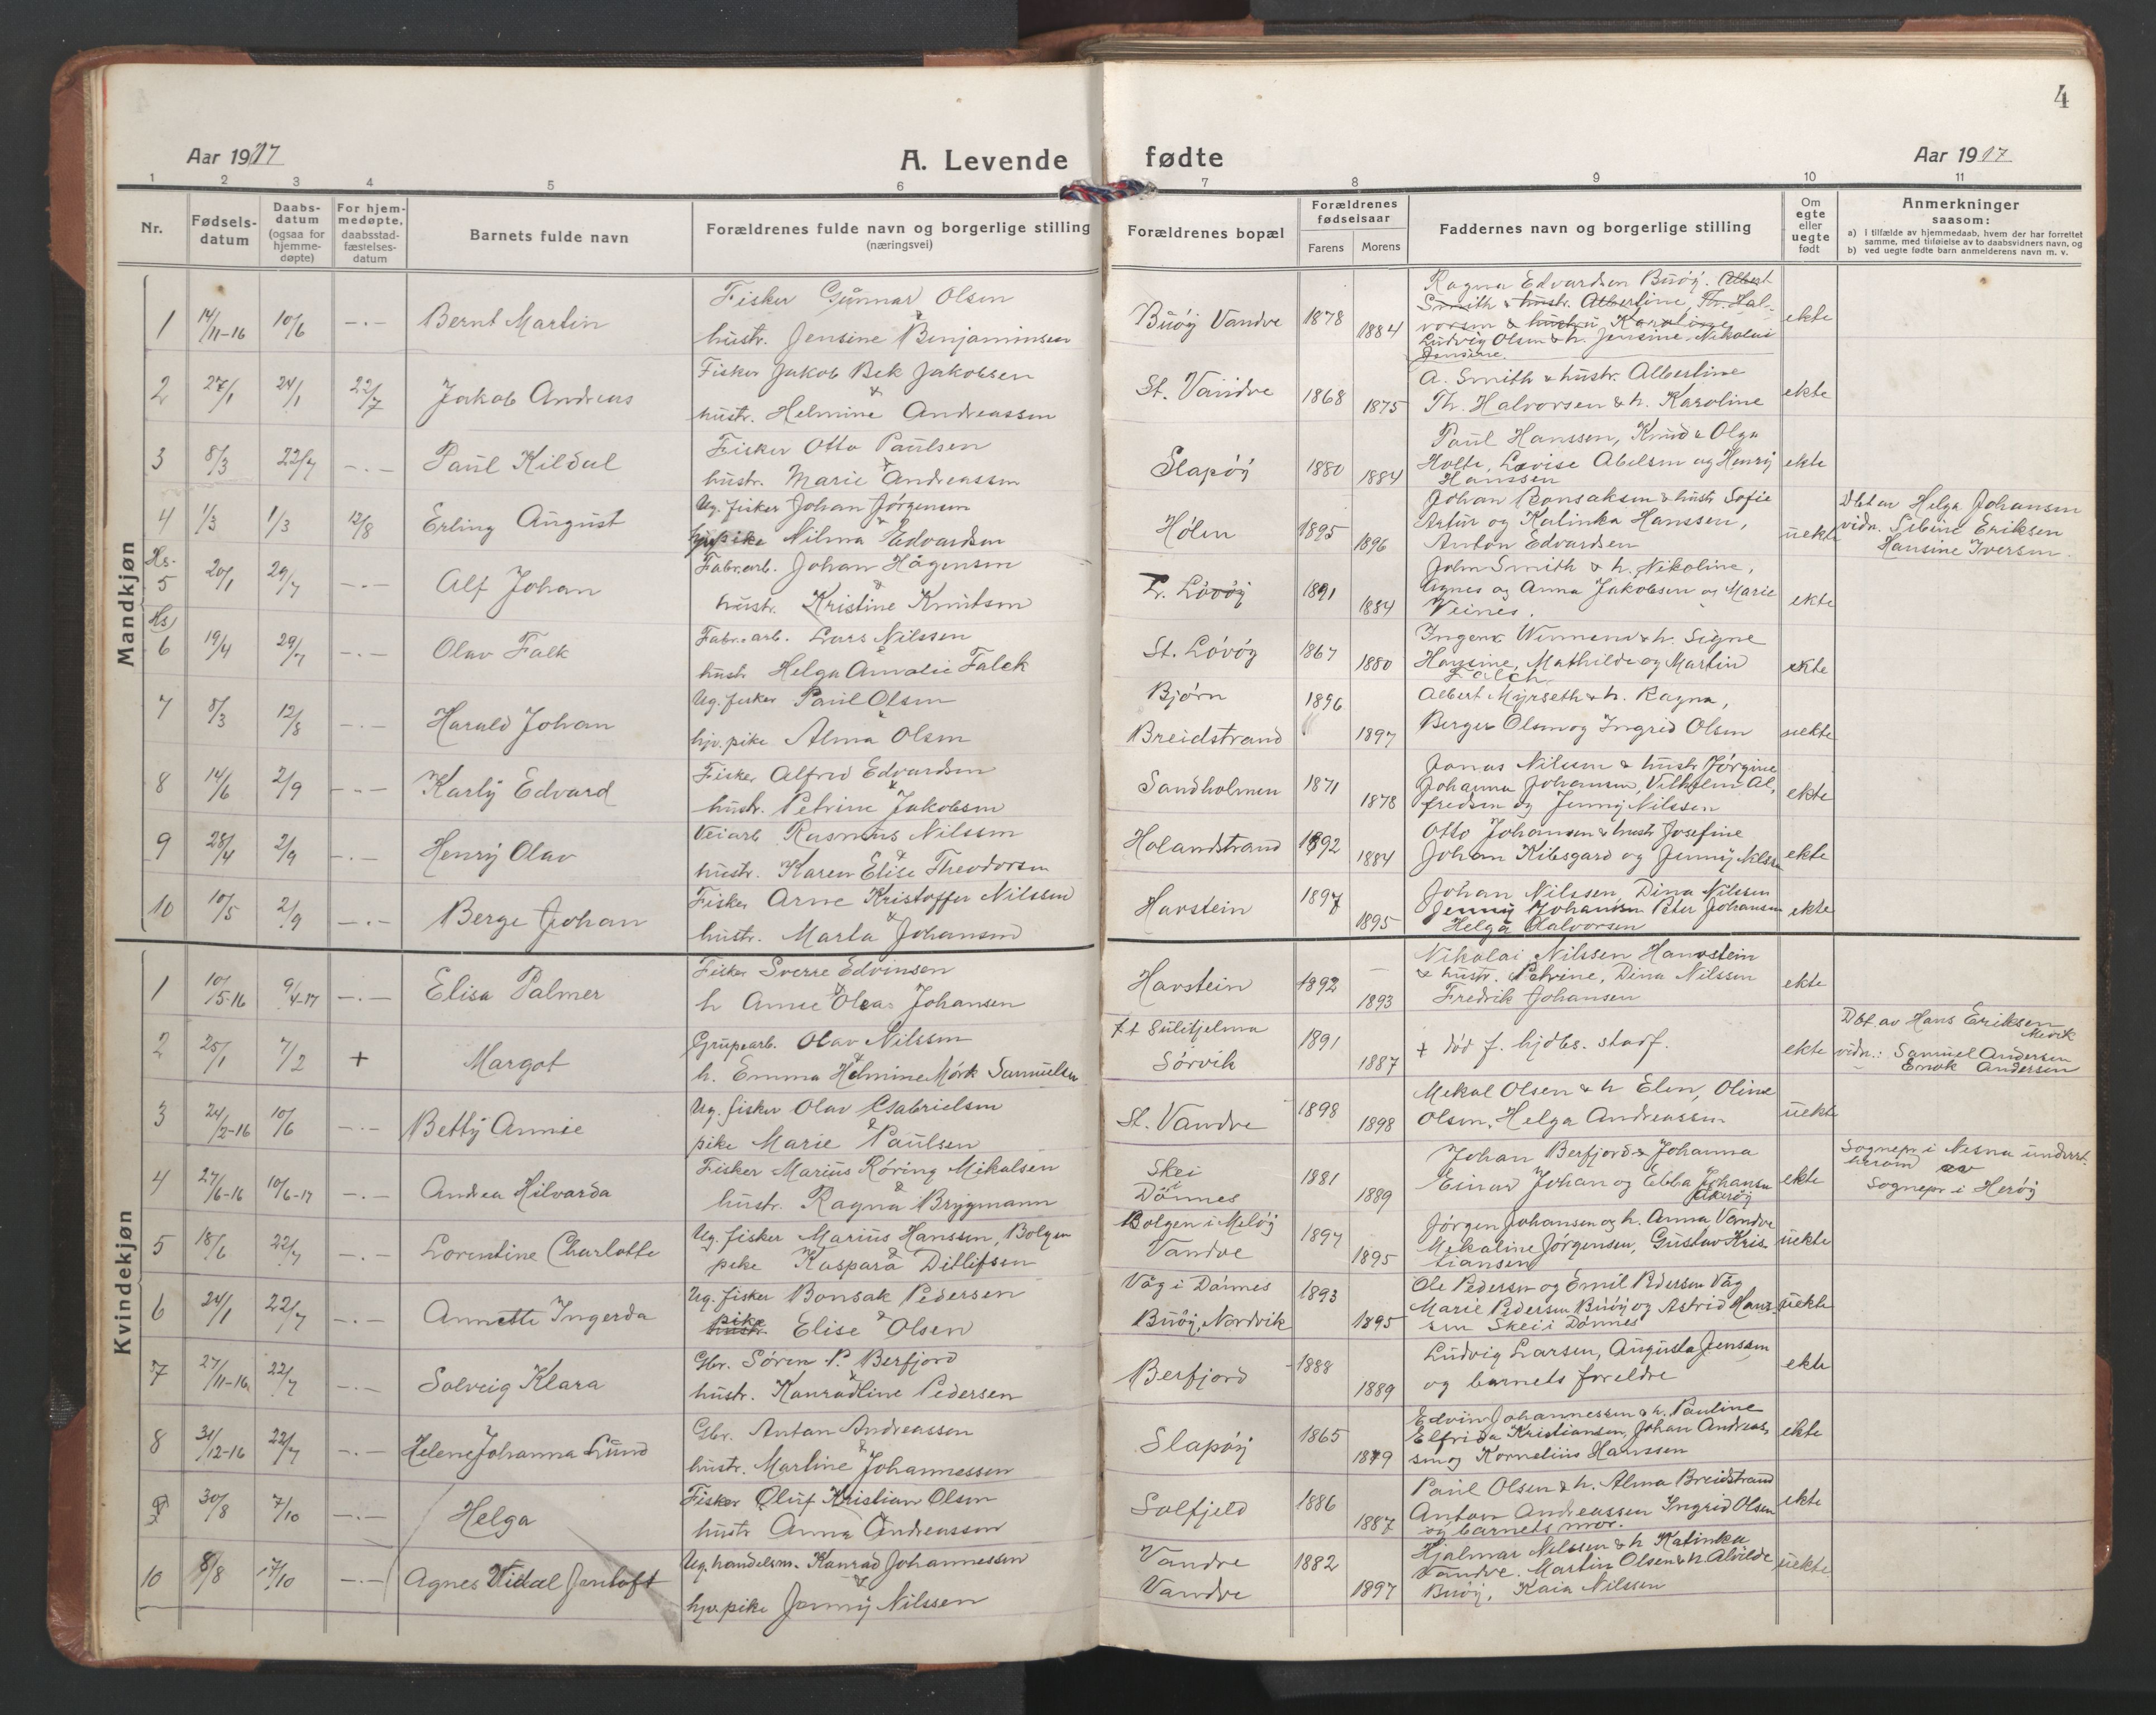 4
Aar 1917
A. Levende fødte
Aar 1917
1 2 3 4 5 6 7 8 9 10 11
Nr.
Fødsels-
datum
Daabs-
datum
(ogsaa for
hjemme-
døpte)
For hjem-
medøpte,
daabsstad-
fæstelses-
datum
Barnets fulde navn
Forældrenes fulde navn og borgerlige stilling
(næringsvei)
Forældrenes bopæl
Forældrenes
fødselsaar
Farens Morens
Faddernes navn og borgerlige stilling
Om
egte
eller
uegte
født
Anmerkninger
saasom:
a) I tilfælde av hjemmedaab, hvem der har forrettet
samme, med tilføielse av to daabsvidners navn, og
b) ved uegte fødte barn anmelderens navn m. v.
Mandkjøn
1 14/11-16 10/6 -.- Bernt Martin
Fisker Gunnar Olsen
&
hustr. Jensine Benjaminsen
Buøy Vandve 1878 1884
Ragna Edvardsen Buøy. Albert
Smith & hustr. Albertine, Th. Hal-
vorsen & hustru Karoline
Ludvig Olsen & h. Jensine. Nikolai
Jensine.
ekte
2 27/1 24/1 22/7 Jakob Andreas
Fisker Jakob Bek Jakobsen
&
hustr. Helmine Andreassen
St. Vandve 1868 1875
A. Smith & hustr. Albertine
Th. Halvorsen & h. Karoline
ekte
3 8/3 22/7 -.- Paul Kildal
Fisker Otto Paulsen
&
hustr. Marie Andreassen
Slapøy 1880 1884
Paul Hanssen, Knud & Olga
Holte, Lovise Abelsen og Henry
Hanssen
ekte
4 1/3 1/3 12/8 Erling August
Ug. fisker Johan Jørgensen
&
pike Nilma Edvardsen
Holm 1895 1896
Johan Bonsaksen & hustr Sofie
Artur og Kalinka Hanssen,
Anton Edvardsen
uekte
Dbt av Helga Johansen
vidn. Sibine Eriksen
Hansine Iversen.
Hs.
5 20/1 29/7 -.- Alf Johan
Fabr.arb. Johan Hågensen
&
hustr. Kristine Knutsen
L. Løvøy 1891 1884
John Smith & h. Nikoline,
Agnes og Anna Jakobsen og Marie
Veines.
ekte
Hs
6 19/4 29/7 -.- Olav Falk
Fabr.arb. Lars Nilssen
hustr Helga Amalie Falck
St. Løvøy 1867 1880
h. Signe
Hansine, Mathilde og Martin
Falch.
ekte
7 8/3 12/8 -.- Harald Johan
Ug. fisker Paul Olsen
&
hjv. pike Alma Olsen
Bjørn
Breidstrand 1896 1897
Albert Myrseth & h. Ragna,
Berger Olsen og Ingrid Olsen
uekte
8 14/6 2/9 -.- Karly Edvard
Fisker Alfred Edvardsen
&
hustr. Petrine Jakobsen
Sandholmen 1871 1878
Jonas Nilssen & hustr Jørgine
Johanna Johansen, Vilhelm Al-
fredsen og Jenny Nilssen
ekte
9 28/4 2/9 -.- Henry Olav
Veiarb Rasmus Nilssen
&
hustr. Karen Elise Theodorsen
Holandstrand 1892 1884
Otto Johansen & hustr Josefine
Johan Kibsgard og Jenny Nilssen
ekte
10 10/5 2/9 -.- Berge Johan
Fisker Arne Kristoffer Nilssen
&
hustr. Marta Johansen
Havstein 1897 1895
Johan Nilssen, Dina Nilssen
Jenny Johansen Peter Johansen
Helga Halvorsen
ekte
Kvindekjøn
1 10/5-16 9/4-17 -.- Elisa Palmer
Fisker Sverre Edvinsen
&
h Anne Olea Johansen
Havstein 1892 1893
Nikolai Nilssen Havstein
& hustr. Petrine, Dina Nilssen
Fredrik Johansen
ekte
2 25/1 7/2 + Margot
Grupearb. Olav Nilssen
&
h. Emma Helmine Mørk Samuelsen
f.t Sulitjelma
Sørvik 1891 1887
+ død f. hjdbs. stadf.
ekte
Dbt. av Hans Eriksen
Mevik
vidn.: Samuel Andersen
Enok Andersen
3 24/2-16 10/6 -.- Betty Annie
Ug. fisker Olav Gabrielsen
&
pike Marie Paulsen
St. Vandve 1898 1898
Mekal Olsen & h Elen, Oline
Olsen, Helga Andreassen
uekte
4 27/6-16 10/6-17 -.- Andea Hilvarda
Fisker Marius Røring Mikalsen
&
hustr. Ragna Brygmann
Skei
i
Dønnes 1881 1889
Johan Berfjord & Johanna
Einar Johan og Ebba Johansen
Åkerøy
ekte
Sognepr i Nesna underret
herom av
Sognepr i Herøy
5 18/6 22/7 -.- Lorentine Charlotte
Ug. fisker Marius Hanssen, Bolgen
&
pike Kaspara Ditlifsen
Bolgen i Meløy
Vandve 1897 1895
Jørgen Johansen og h. Anna Vandve
Mekaline Jørgensen, Gustav Kris
tiansen
uekte
6 24/1 22/7 -.- Annette Ingerda
Ug. fisker Bonsak Pedersen
&
pike
hustr. Elise Olsen
Våg i Dønnes
Buøy, Nordvik 1893 1895
Ole Pedersen og Emil Pedersen Våg
Marie Pedersen Buøy og Astrid Hans-
sen Skei i Dønnes
uekte
7 27/11-16 22/7 -.- Solveig Klara
Gbr. Søren P. Berfjord
&
hustr. Konradline Pedersen
Berfjord 1888 1889
Ludvig Larsen, Augusta Jenssen
og barnets foreldre
ekte
8 31/12-16 22/7 -.- Helene Johanna Lund
Gbr. Anton Andreassen
&
hustr. Martine Johannessen
Slapøy 1865 1879
Edvin Johannessen & h. Pauline
Elfrida Kristiansen, Johan Andreas-
sen og Kornelius Hanssen
ekte
9 30/8 7/10 -.- Helga
Fisker Oluf Kristian Olsen
&
hustr Anna Andreassen
Solfjeld 1886 1887
Paul Olsen & h. Alma Breidstrand
Anton Andreassen Ingrid Olsen
og barnets mor.
ekte
10 8/8 17/10 -.- Agnes Vidal Jentoft
Ug. handelsm. Konrad Johannessen
&
hjv. pike Jenny Nilssen
Vandve
Vandve 1882 1897
Hjalmar Nilssen & h Katinka
Vandve. Martin Olsen & h. Alvilde
Buøy, Kaia Nilssen
uekte